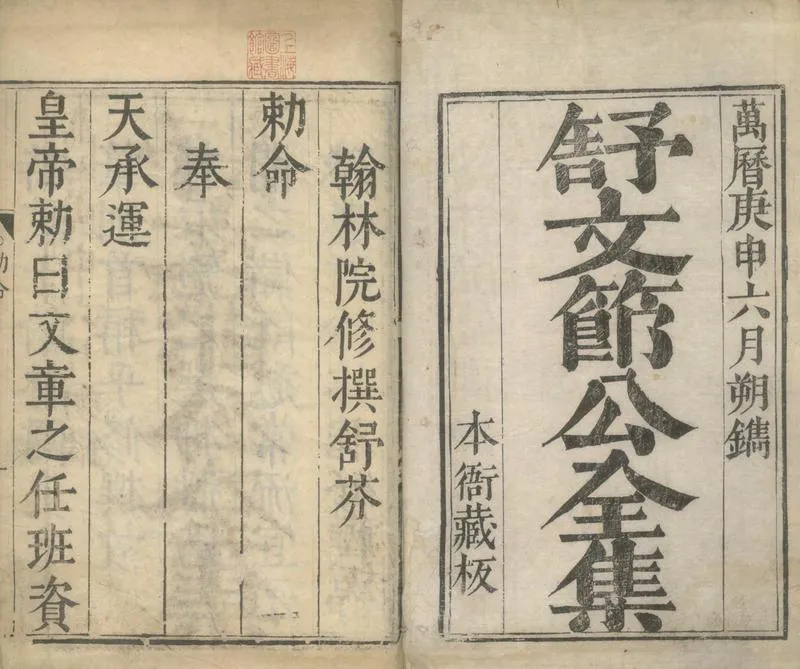 萬曆庚申六月朔鐫
舒文節公全集
本衙藏板
上海
圖書
館藏
翰林院修撰舒芬
勅命
奉
天承運
皇帝勅曰文章之任班資
勅命